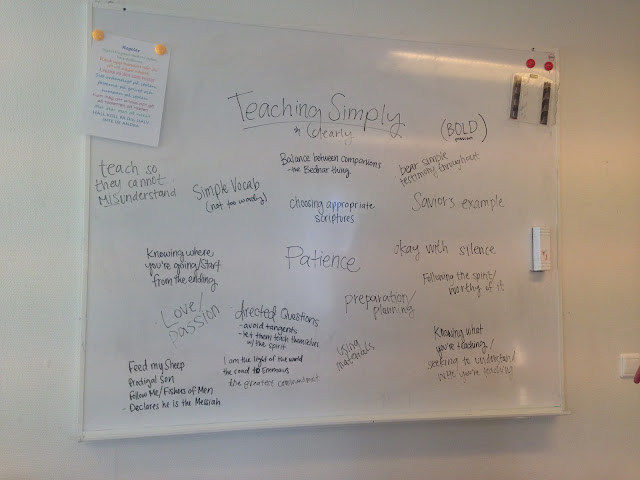 Teaching Simply
& Clearly
(BOLD)
Balance between companions
- the Bednar thing
bear simple
testimony throughout
teach so
they cannot
MISunderstand
Simple Vocab
(not too wordy)
choosing appropriate
scriptures
Savior's example
Knowing where
you're going/start
from the ending
Patience
okay with silence
Following the spirit/
worthy of it
Love/
Passion
directed Questions
- avoid tangents
- let them teach themselves
w/ the spirit
preparation/
planning
using
materials
Knowing what
you're teaching/
seeking to understand
who you're teaching
Feed my Sheep
Prodigal Son
Follow Me/Fishers of Men
- Declares he is the Messiah
I am the light of the world
the road to Emmaus
the greatest commandment